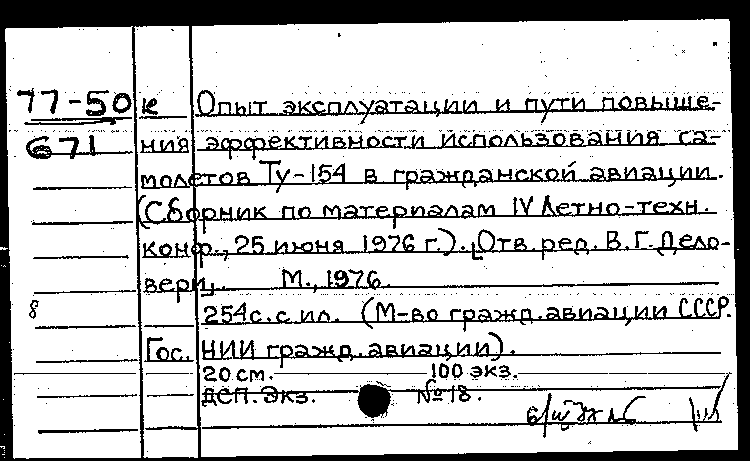 77-50 к Опыт эксплуатации и пути повыше-
671 ния эффективности использования са-
молетов Ту-154 в гражданской авиации.
(Сборник по материалам IV Летно-техн.
конф., 25 июня 1976 г.). [Отв. ред. В. Г. Дело-
вери, М., 1976.
8 254 с. с ил. (М-во гражд. авиации СССР.
Гос. НИИ гражд. авиации).
20 см. 100 экз.
ДСП. Экз. №18.